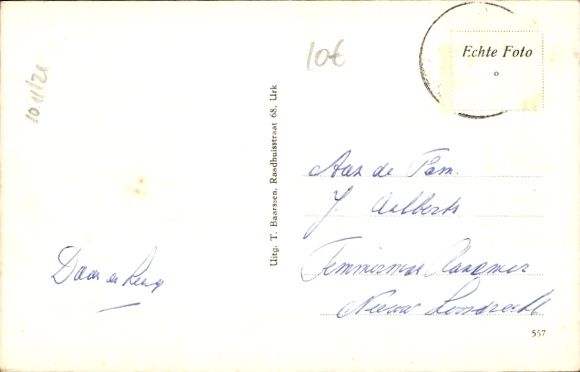 10€
Echte Foto
10/11/21
Uitg. T. Baarssen, Raadhuisstraat 68, Urk
Aan de Fam.
J. Aalberts
Nieuw Loosdrecht
Daan en
557